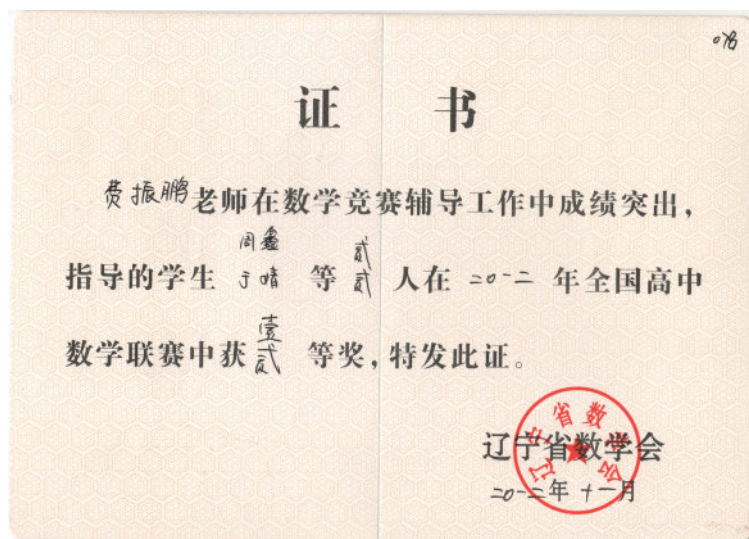 078
证 书
费振鹏老师在数学竞赛辅导工作中成绩突出，
周鑫 贰
指导的学生 于晴 等 贰 人在 二〇一二 年全国高中
壹
数学联赛中获 贰 等奖，特发此证。
辽宁省数学会
辽宁省数学会
二〇一二年十一月